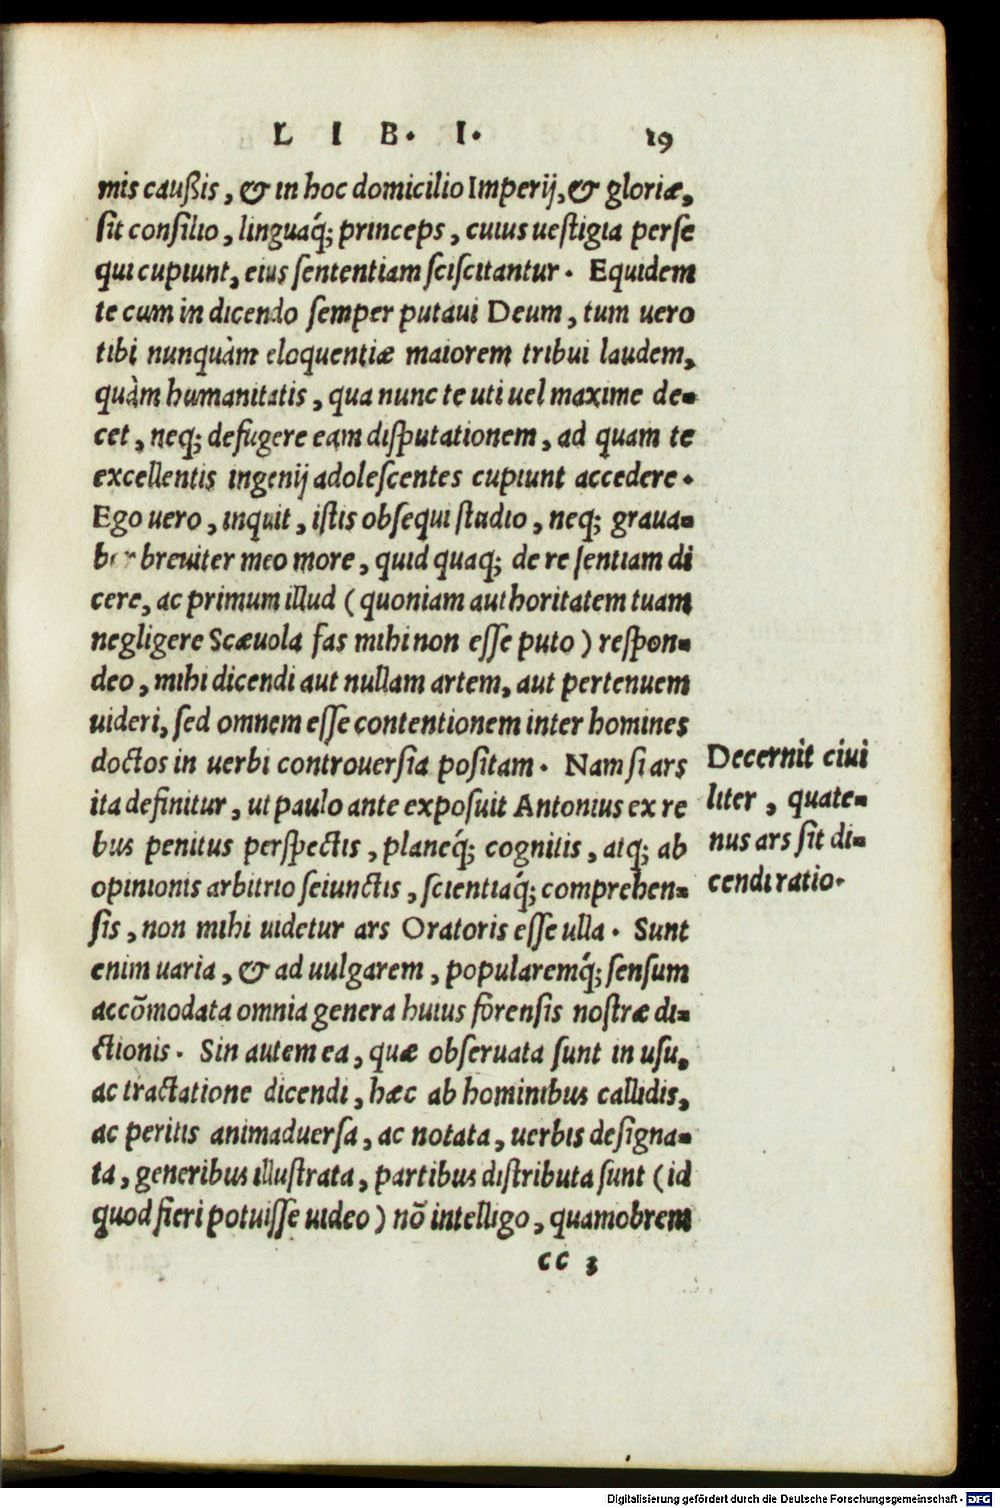 LIB. I. 19
mis caußis, & in hoc domicilio Imperij, & gloriæ,
sit consilio, linguaq́; princeps, cuius uestigia perse
qui cupiunt, eius sententiam sciscitantur. Equidem
te cum in dicendo semper putaui Deum, tum uero
tibi nunquàm eloquentiæ maiorem tribui laudem,
quàm humanitatis, qua nunc te uti uel maxime de-
cet, neq; defugere eam disputationem, ad quam te
excellentis ingenij adolescentes cupiunt accedere.
Ego uero, inquit, istis obsequi studio, neq; graua-
bor breuiter meo more, quid quaq; de re sentiam di
cere, ac primum illud (quoniam authoritatem tuam
negligere Scæuola fas mihi non esse puto) respon-
deo, mihi dicendi aut nullam artem, aut pertenuem
uideri, sed omnem esse contentionem inter homines
doctos in uerbi controuersia positam. Nam si ars
ita definitur, ut paulo ante exposuit Antonius ex re
bus penitus perspectis, planeq́; cognitis, atq; ab
opinionis arbitrio seiunctis, scientiaq́; comprehen-
sis, non mihi uidetur ars Oratoris esse ulla. Sunt
enim uaria, & ad uulgarem, popularemq́; sensum
accõmodata omnia genera huius forensis nostræ di-
ctionis. Sin autem ea, quæ obseruata sunt in usu,
ac tractatione dicendi, hæc ab hominibus callidis,
ac peritis animaduersa, ac notata, uerbis designa-
ta, generibus illustrata, partibus distributa sunt (id
quod fieri potuisse uideo) nõ intelligo, quamobrem
cc 3
Decernit ciui
liter, quate-
nus ars sit di-
cendi ratio.
Digitalisierung gefördert durch die Deutsche Forschungsgemeinschaft - DFG